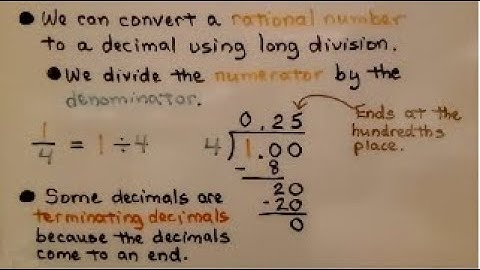 ● We can convert a rational number
to a decimal using long division.
● We divide the numerator by the
denominator.
1/4 = 1 ÷ 4
0.25
4)1.00
- 8
20
- 20
0
Ends at the
hundredths
place.
● Some decimals are
terminating decimals
because the decimals
come to an end.